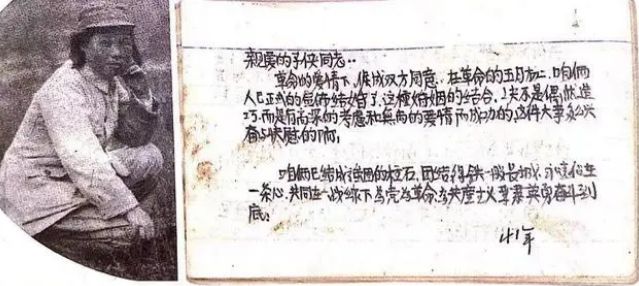 亲爱的子侠同志：
革命的爱情下，促成双方同意，在革命的五月
人已正式的宣佈结婚了，这种婚姻的结合，决不是偶然遭
巧，而是有高深的考慮和無尚的爱情而成功的，这件大事多么兴
奋与快慰的
咱俩已结成强固的柱石，团结得铁一般长城，永
一条心，共同在一战线下，为党为革命为共產主义事業英勇奋斗到
底。
41年